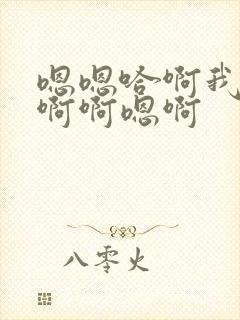 嗯嗯哈啊我
啊啊嗯啊
八零火